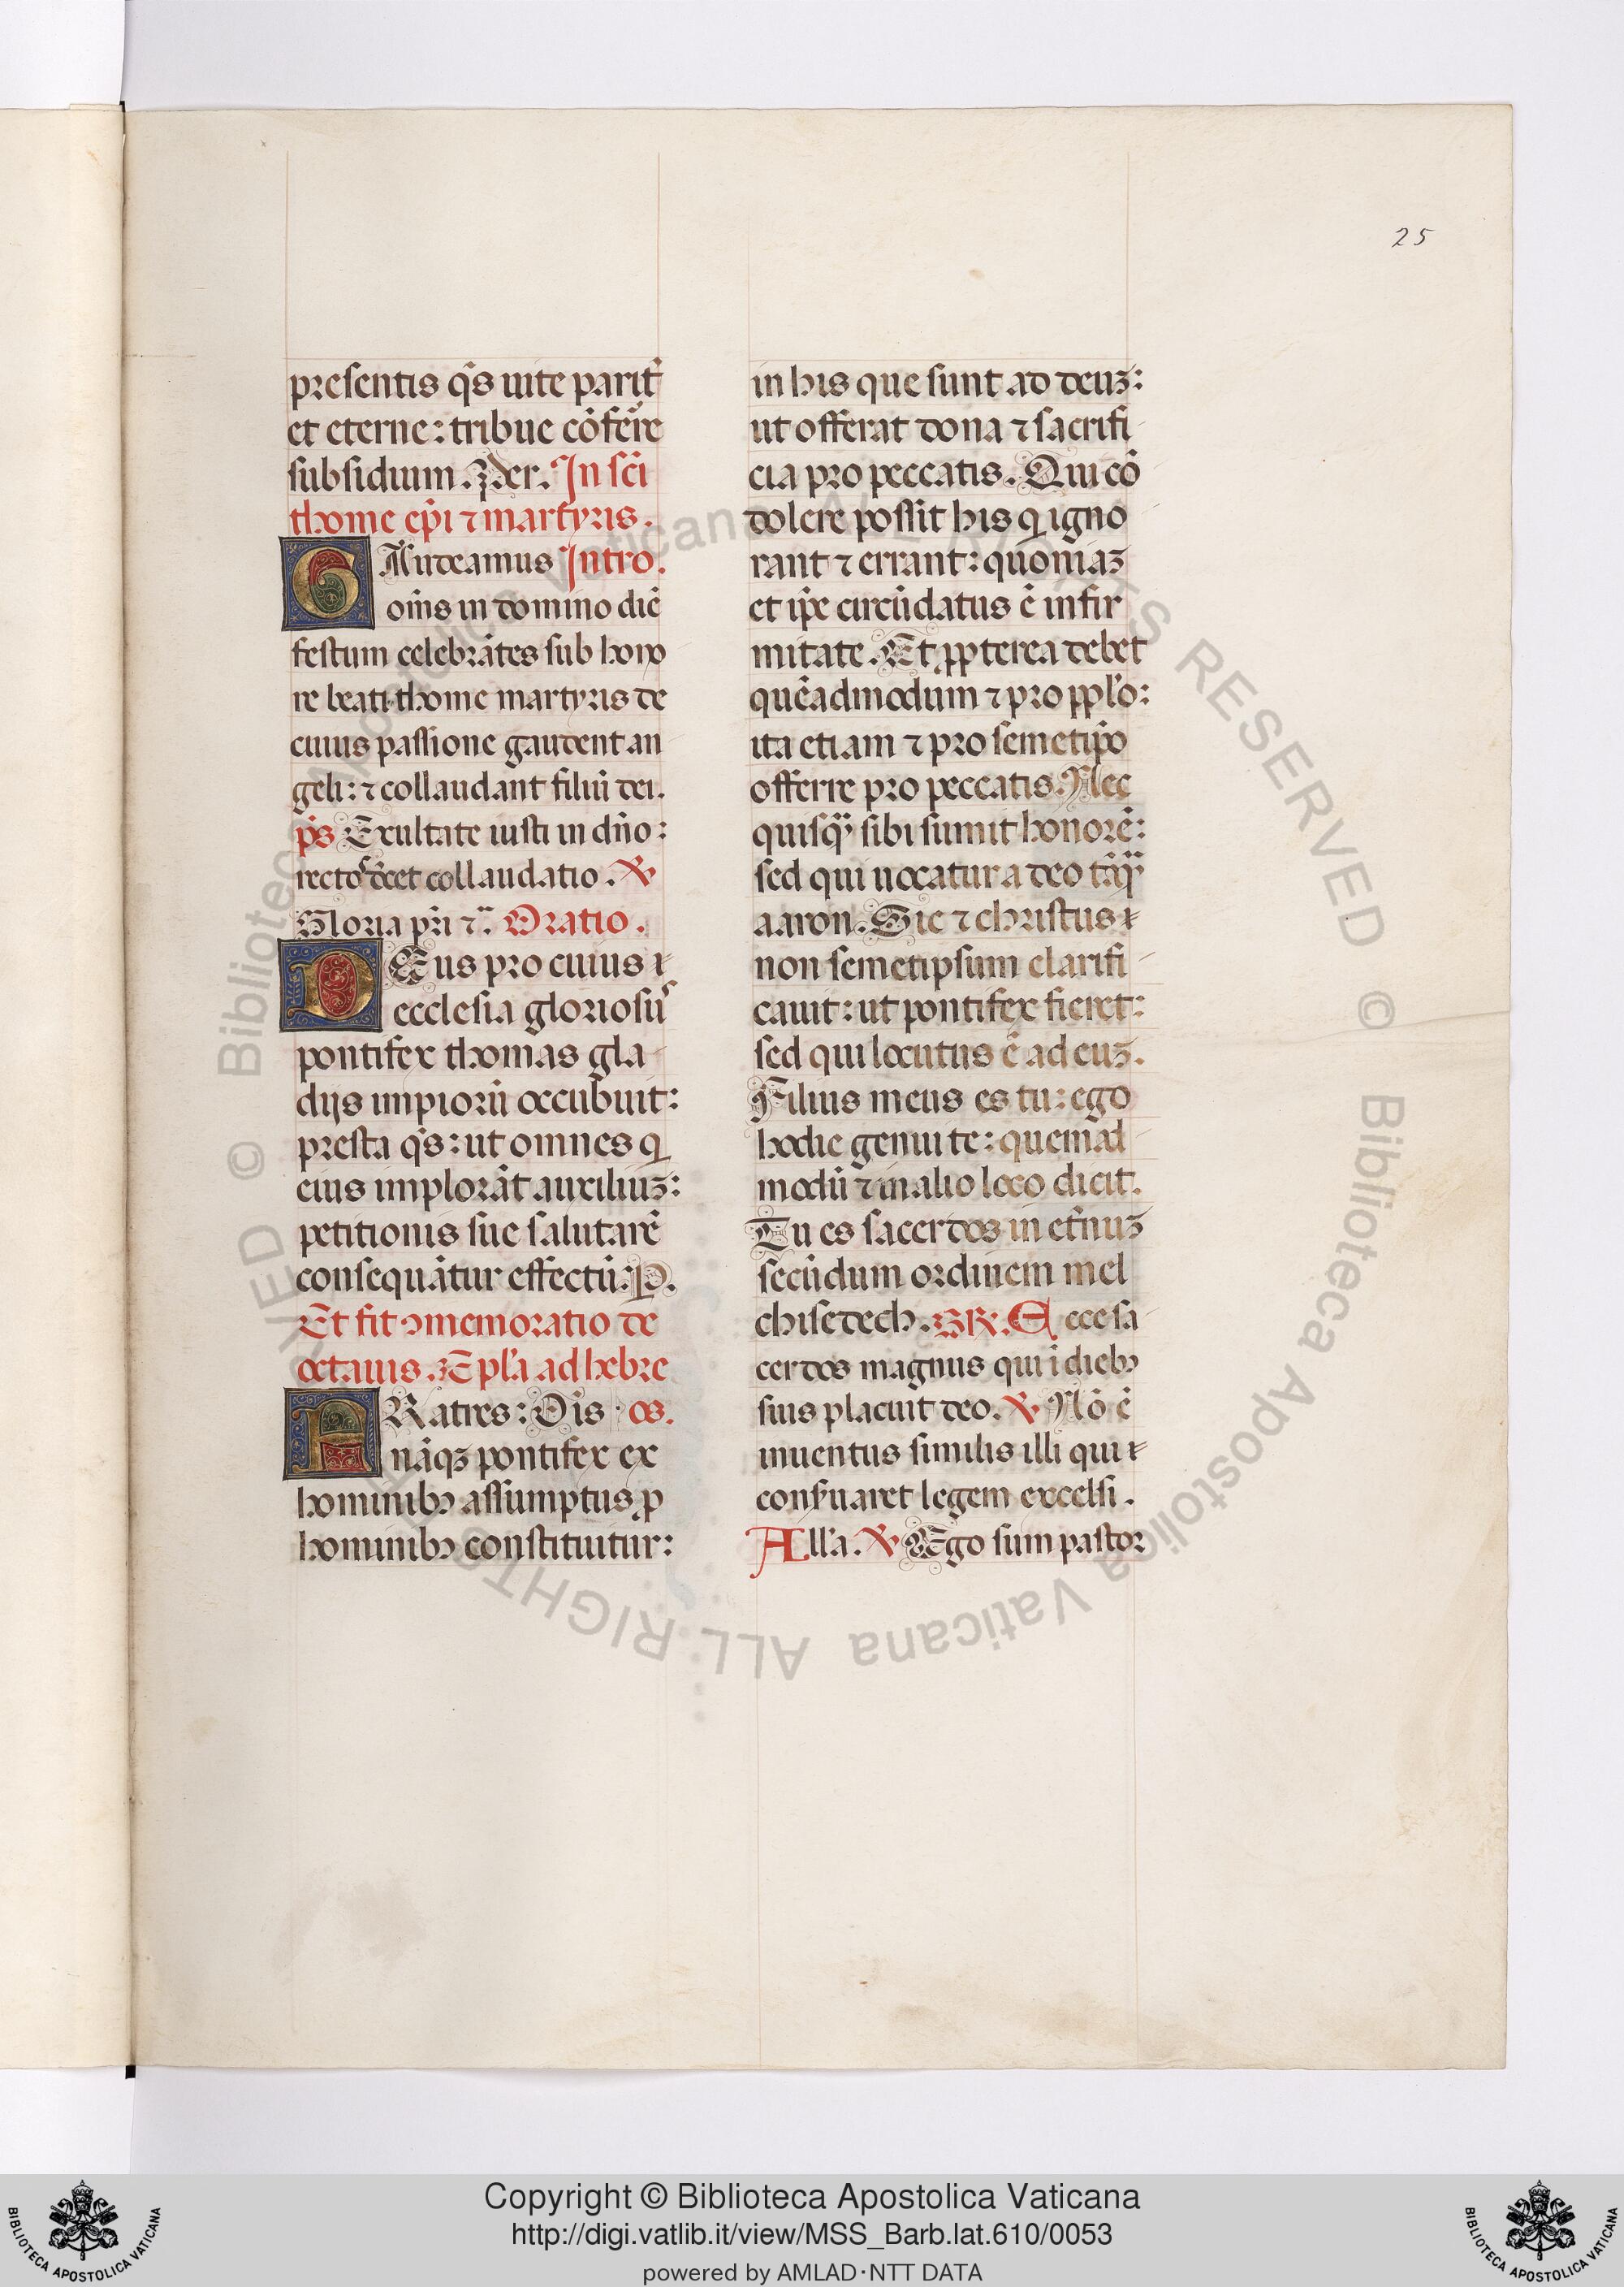 25
presentis q̃s uite parit᷑
et eterne: tribue cõferre
subsidium. Per. In sc̃i
thome ep̃i ⁊ martyris.
GAudeamus Intro.
om̃s in domino diẽ
festum celebrãtes sub hono
re beati thome martyris de
cuius passione gaudent an
geli: ⁊ collaudant filiũ dei.
p̃s Exultate iusti in dño:
rectos decet collaudatio. ℣
Gloria pr̃i ⁊c̃. Oratio.
DEus pro cuius
ecclesia gloriosus
pontifex thomas gla
dijs impiorũ occubuit:
presta q̃s: ut omnes q̃
eius implorãt auxiliuꝫ:
petitionis sue salutarẽ
consequãtur effectũ. P.
Et fit ꝯmemoratio de
octauis. Ep̃la ad hebre
FRatres: Ois os.
nãqꝫ pontifex ex
hominibꝫ assumptus, ꝓ
hominibꝫ constituitur:
in his que sunt ad deuꝫ:
ut offerat dona ⁊ sacrifi
cia pro peccatis. Qui cõ
dolere possit his q̃ igno
rant ⁊ errant: quoniaꝫ
et ip̃e circũdatus ẽ infir
mitate. Et ꝓpterea debet
quẽadmodum ⁊ pro pp̃lo:
ita etiam ⁊ pro semetip̃o
offerre pro peccatis. Nec
quisq̃ sibi sumit honorẽ:
sed qui uocatur a deo tãq̃
aaron. Sic ⁊ christus
non semetipsum clarifi
cauit: ut pontifex fieret:
sed qui locutus ẽ ad euꝫ.
Filius meus es tu: ego
hodie genui te: quemad
modũ ⁊ in alio loco dicit.
Tu es sacerdos in et̃nuꝫ
secũdum ordinem mel
chisedech. GR. Ecce sa
cerdos magnus qui ĩ diebꝫ
suis placuit deo. ℣ Nõ ẽ
inuentus similis illi qui
conẜuaret legem excelsi.
All̃a. ℣ Ego sum pastor
© Biblioteca Apostolica Vaticana ALL RIGHTS RESERVED © Biblioteca Apostolica Vaticana ALL RIGHTS RESERVED
Copyright © Biblioteca Apostolica Vaticana
http://digi.vatlib.it/view/MSS_Barb.lat.610/0053
powered by AMLAD·NTT DATA
BIBLIOTECA APOSTOLICA VATICANA
BIBLIOTECA APOSTOLICA VATICANA